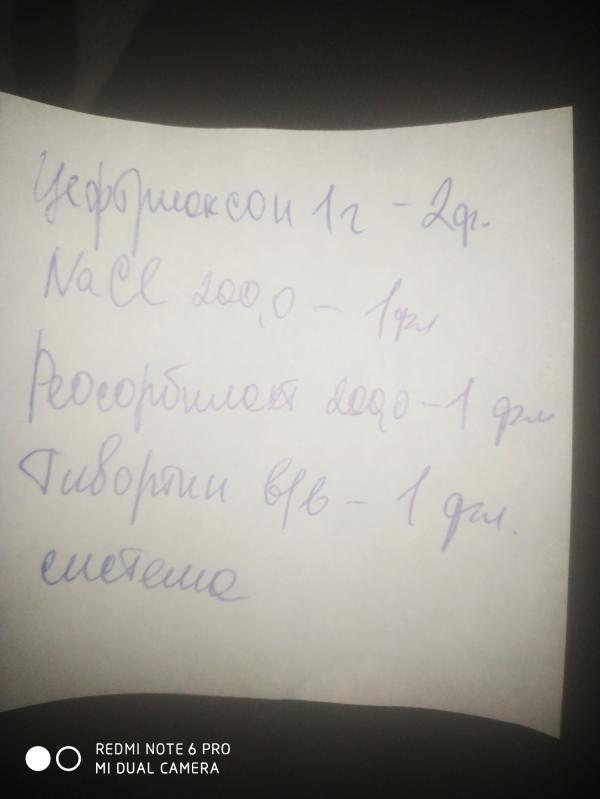 Цефтриаксон 1г - 2ф.
NaCl 200,0 - 1фл
Реосорбилакт 200,0 - 1 фл
Тивортин в/в - 1 фл.
система
REDMI NOTE 6 PRO
MI DUAL CAMERA